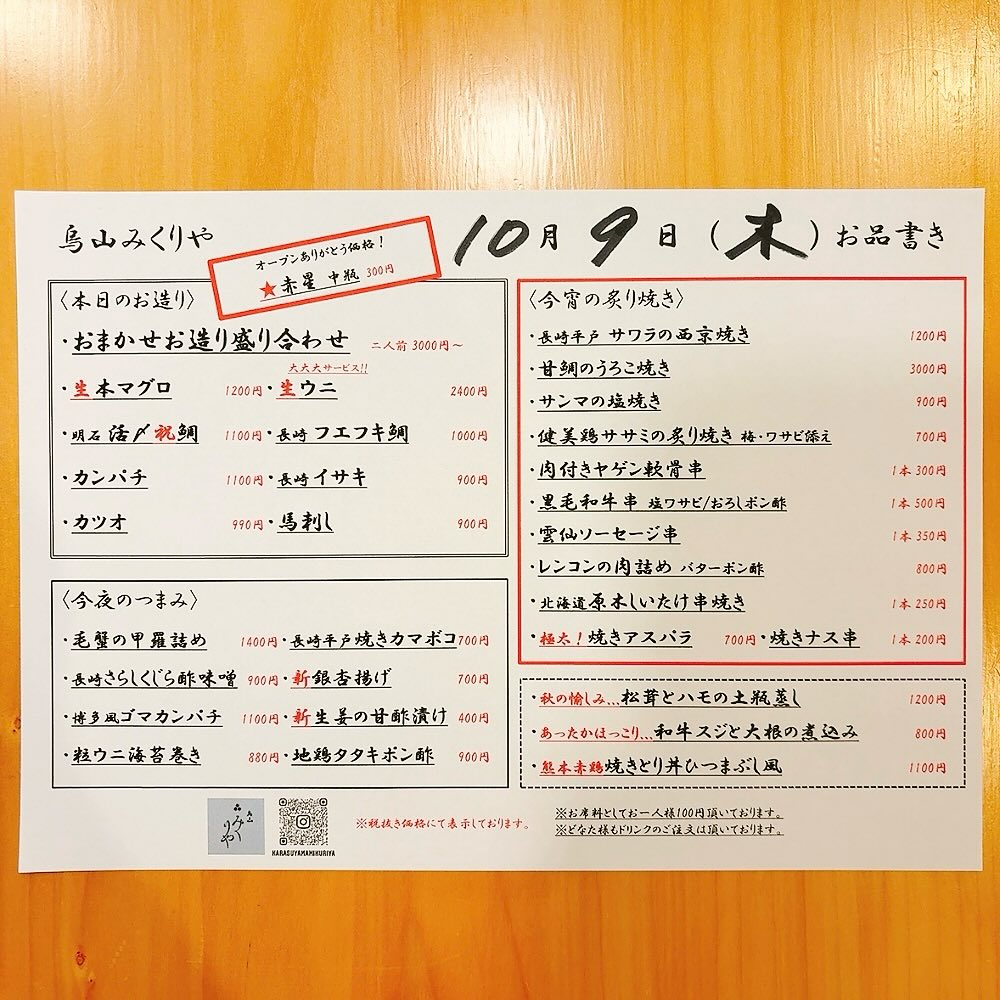 烏山みくりや
10月9日(木)お品書き
オープンありがとう価格!
★赤星 中瓶 300円
〈本日のお造り〉
・おまかせお造り盛り合わせ 二人前 3000円~
大大大サービス!!
・生本マグロ 1200円・生ウニ 2400円
・明石 活〆祝鯛 1100円・長崎 フエフキ鯛 1000円
・カンパチ 1100円・長崎イサキ 900円
・カツオ 990円・馬刺し 900円
〈今夜のつまみ〉
・毛蟹の甲羅詰め 1400円・長崎平戸焼きカマボコ700円
・長崎さらしくじら酢味噌 900円・新銀杏揚げ 700円
・博多風ゴマカンパチ 1100円・新生姜の甘酢漬け 400円
・粒ウニ海苔巻き 880円・地鶏タタキポン酢 900円
〈今宵の炙り焼き〉
・長崎平戸 サワラの西京焼き 1200円
・甘鯛のうろこ焼き 3000円
・サンマの塩焼き 900円
・健美鶏ササミの炙り焼き 梅・ワサビ添え 700円
・肉付きヤゲン軟骨串 1本300円
・黒毛和牛串 塩ワサビ/おろしポン酢 1本500円
・雲仙ソーセージ串 1本350円
・レンコンの肉詰め バターポン酢 800円
・北海道原木しいたけ串焼き 1本250円
・極太!焼きアスパラ 700円・焼きナス串 1本200円
・秋の愉しみ…松茸とハモの土瓶蒸し 1200円
・あったかほっこり…和牛スジと大根の煮込み 800円
・熊本赤鶏焼きとり丼ひつまぶし風 1100円
烏山
みくりや
KARASUYAMAMIKURIYA
※税抜き価格にて表示しております。
※お席料としてお一人様100円頂いております。
※どなた様もドリンクのご注文は頂いております。